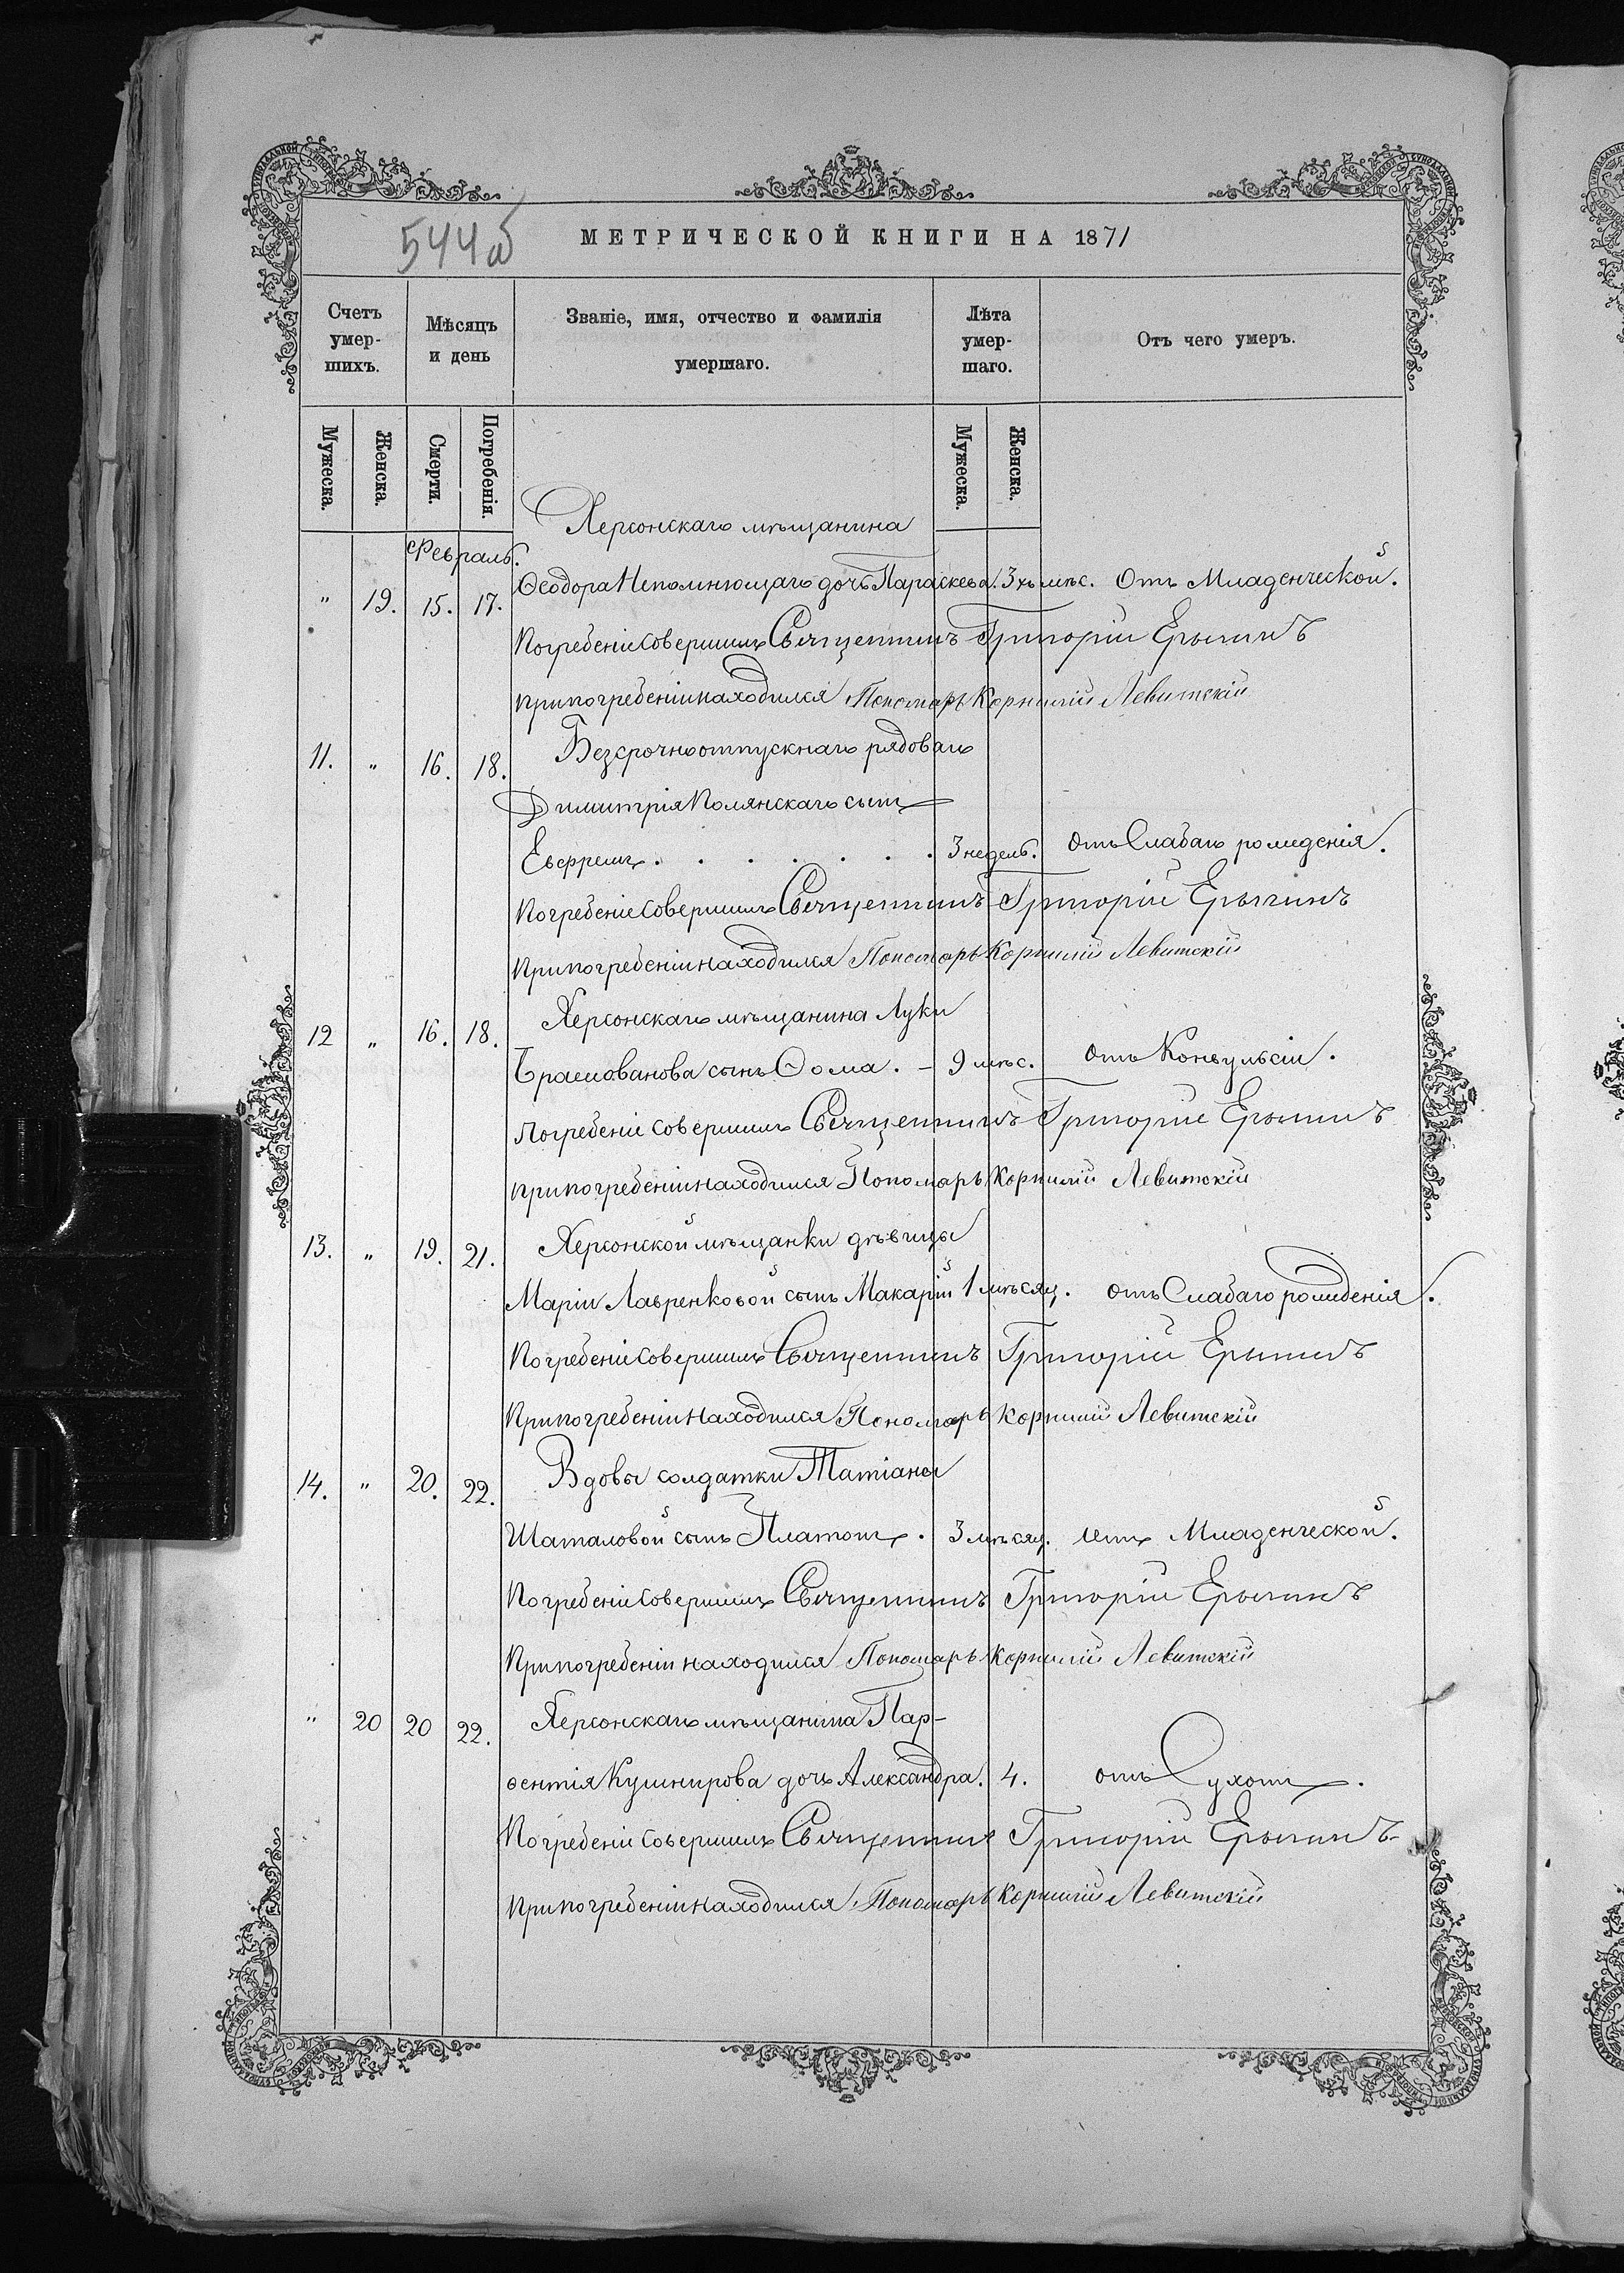 544об
МЕТРИЧЕСКОЙ КНИГИ НА 1871
Счетъ умер-шихъ.
Мѣсяцъ и день
Званіе, имя, отчество и фамилія умершаго.
Лѣта умер-шаго.
Отъ чего умеръ.
Мужеска.
Женска.
Смерти.
Погребенія.
Мужеска.
Женска.
Февраль.
Херсонскаго мѣщанина
" 19. 15. 17. Ѳеодора Непомнющаго дочь Параскева. 3хъ мѣс. Отъ Младенческой.
Погребеніе совершилъ Священникъ Григорій
При погребеніи находился Пономарь Корнилій Левитскій
11. " 16. 18. Безсрочноотпускнаго рядоваго
Димитрія Полянскаго сынъ
Евфремъ . . . . . . . 3 недель. Отъ Слабаго рожденія.
Погребеніе совершилъ Священникъ Григорій
При погребеніи находился Пономарь Корнилій Левитскій
12 " 16. 18. Херсонскаго мѣщанина Луки
сынъ Ѳома. - 9 мѣс. Отъ Конвульсіи.
Погребеніе совершилъ Священникъ Григорій
При погребеніи находился Пономарь Корнилій Левитскій
13. " 19. 21. Херсонской мѣщанки дѣвицы
Маріи Лавренковой сынъ Макарій 1 мѣсяц. отъ Слабаго рожденія.
Погребеніе совершилъ Священникъ Григорій
При погребеніи находился Пономарь Корнилій Левитскій
14. " 20. 22. Вдовы солдатки Татіаны
Шаталовой сынъ Платонъ. 3 мѣсяц. отъ Младенческой.
Погребеніе совершилъ Священникъ Григорій
При погребеніи находился Пономарь Корнилій Левитскій
" 20 20 22. Херсонскаго мѣщанина Пар-
ѳентія Кушнирова дочь Александра. 4. отъ Сухотъ.
Погребеніе совершилъ Священникъ Григорій
При погребеніи находился Пономарь Корнилій Левитскій